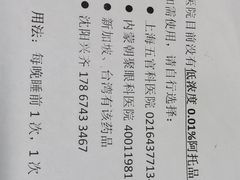 医院目前没有低浓度 0.01%阿托品
如需使用，请自行选择：
• 上海五官科医院 0216437713
• 内蒙朝聚眼科医院 40011981
• 新加坡、台湾有该药品
• 沈阳兴齐 178 6743 3467
用法：每晚睡前 1 次，1 次